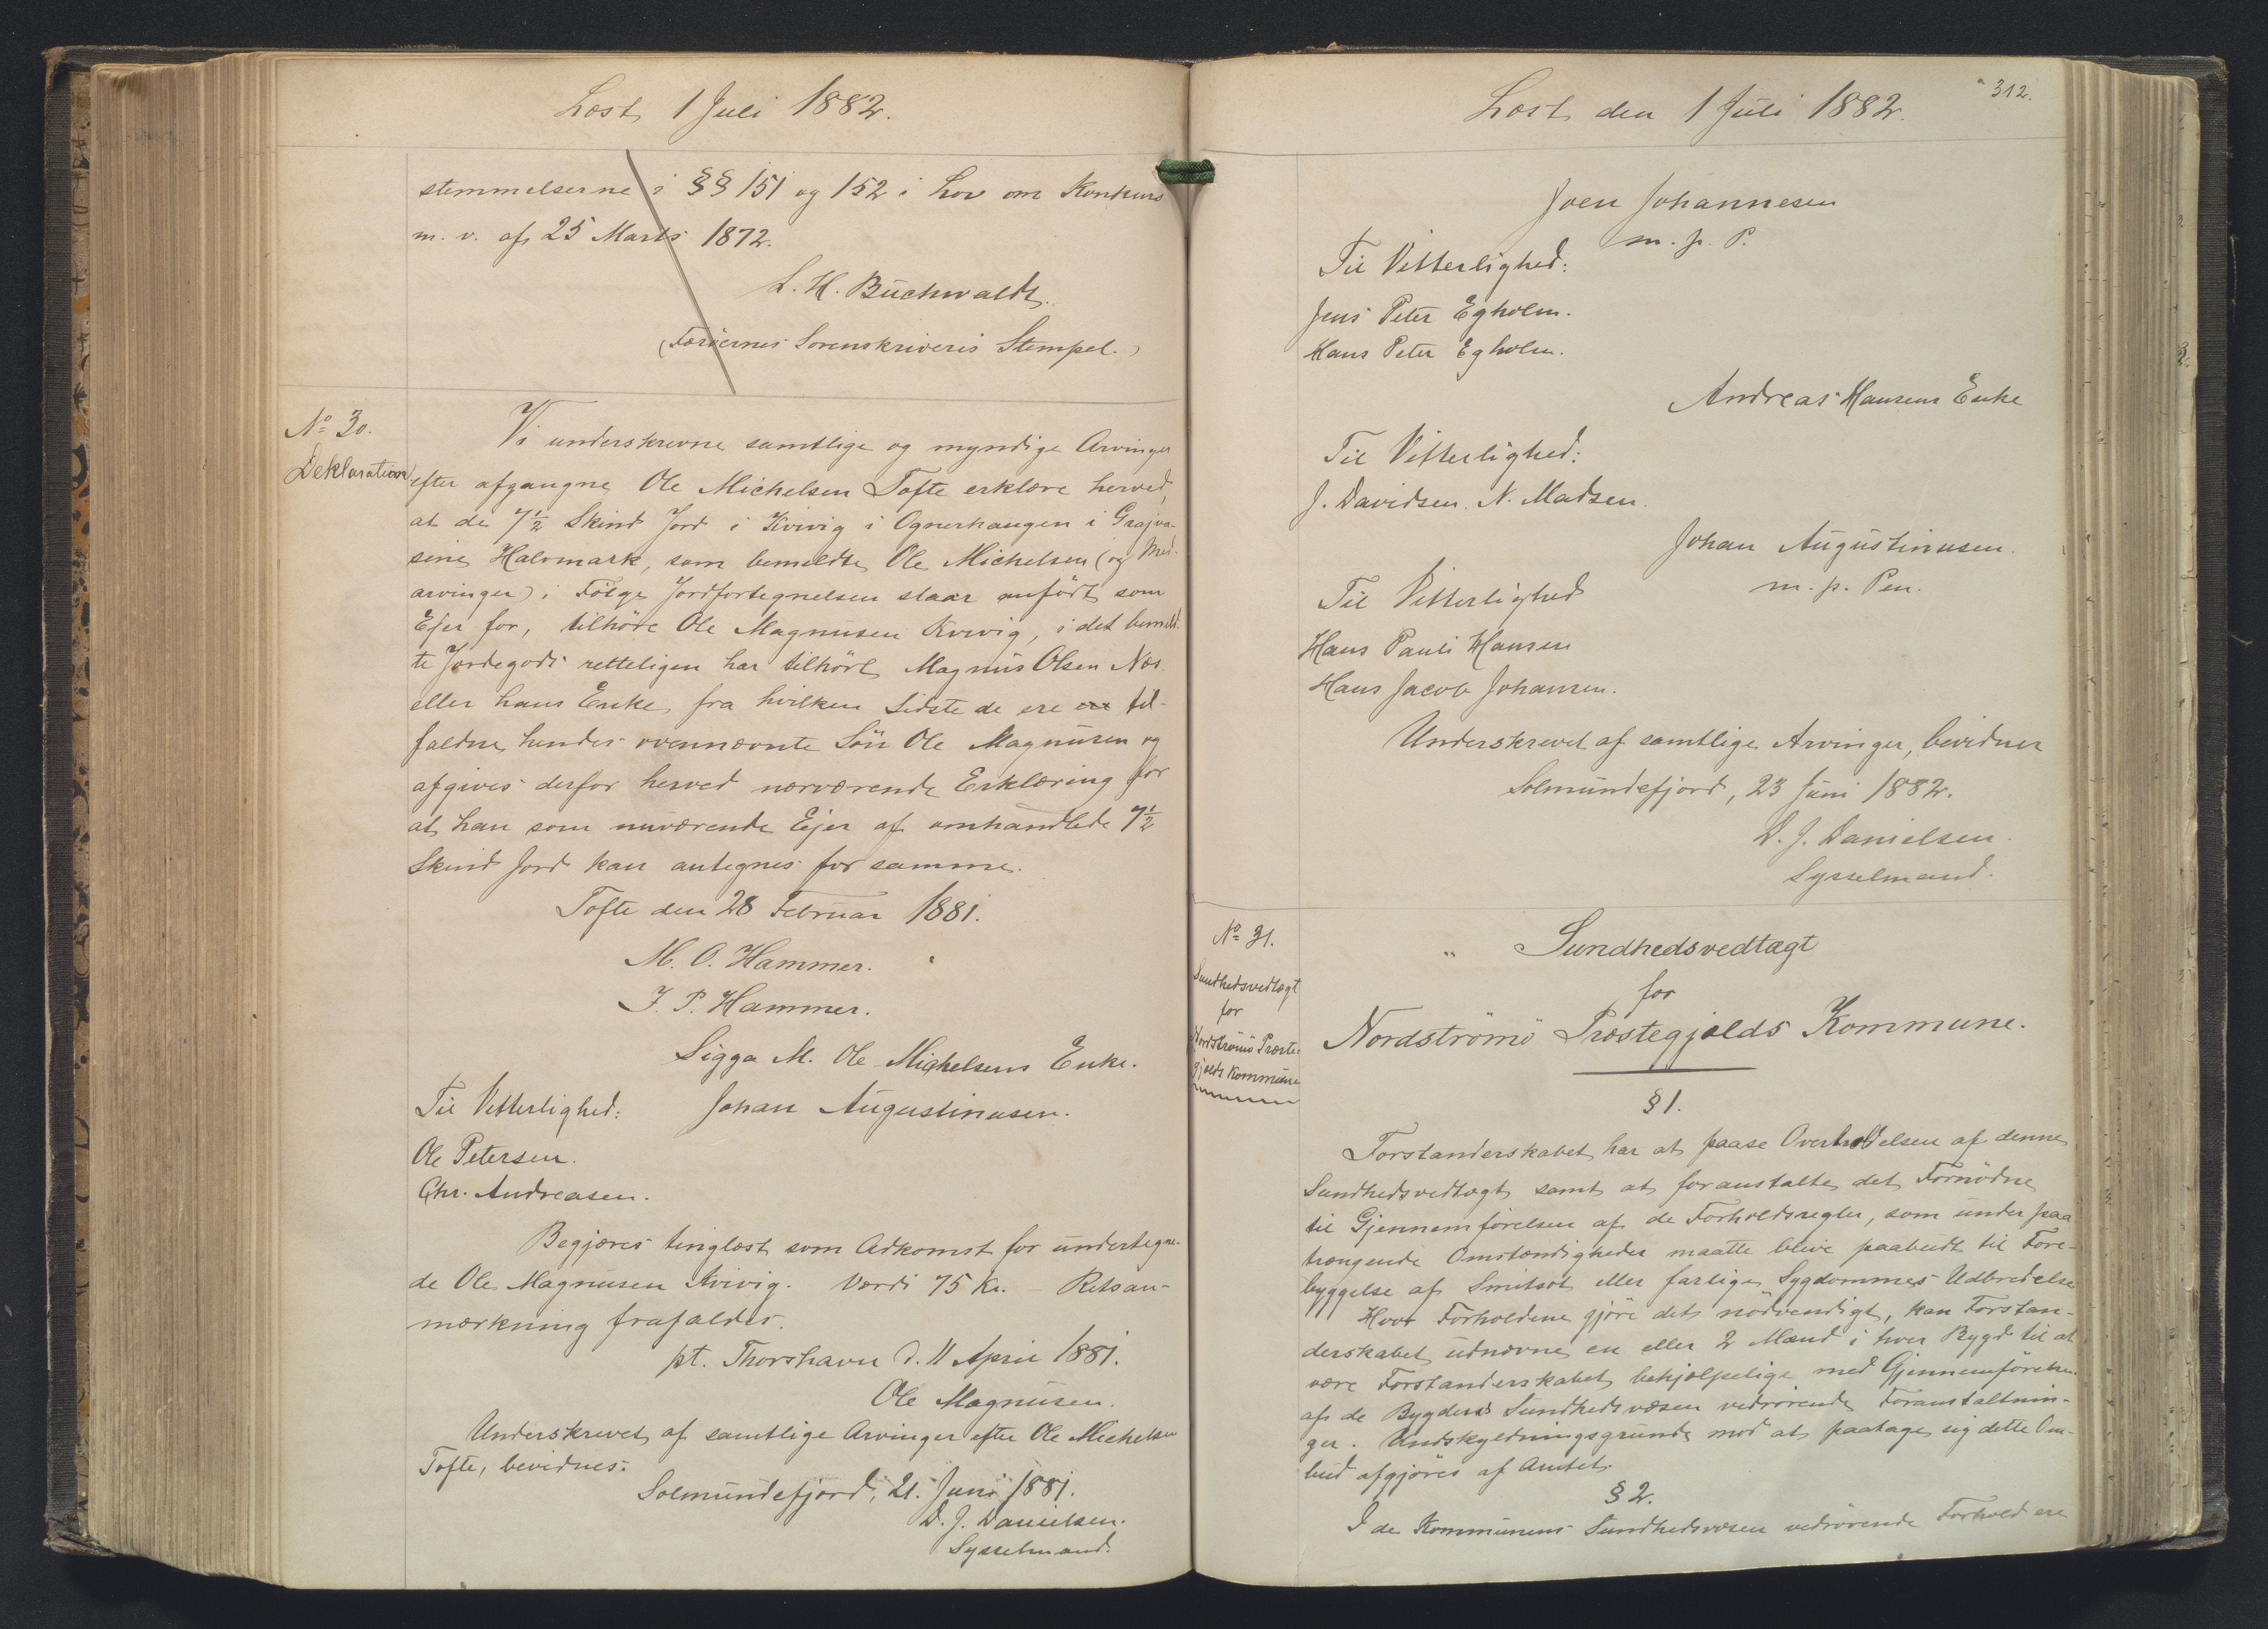 Læst 1 Juli 1882.
stemmelserne i §§ 151 og 152 i Lov om Konkurs
m. v. af 25 Marts 1872.
L. H. Buchwaldt.
(Færöernes Sorenskriveris Stempel.)
No 30.
Deklaration
Vi underskrevne samtlige og myndige Arvinger
efter afgangne Ole Michelsen Tofte erklære herved,
at de 7½ Skind Jord i Kvivig i Ognerhaugen i Grajva-
sine Halvmark, som bemeldte Ole Michelsen (og Med-
arvinger) i Fölge Jordfortegnelsen staar anfört som
Ejer for, tilhöre Ole Magnusen Kvivig, i det bemeld-
te Jordegods retteligen har tilhört Magnus Olsen Næs
eller hans Enke, fra hvilken sidste de ere til-
faldne hendes ovennævnte Sön Ole Magnusen og
afgives derfor herved nærværende Erklæring for
at han som nuværende Ejer af omhandlede 7½
Skind Jord kan antegnes for samme.
Tofte den 28 Februar 1881.
M. O. Hammer.
J. P. Hammer.
Sigga M. Ole Michelsens Enke.
Til Vitterlighed: Johan Augustinusen.
Ole Petersen.
Chr. Andreasen.
Begjæres tinglæst som Adkomst for undertegne-
de Ole Magnusen Kvivig. Værdi 75 Kr. - Retsan-
mærkning frafaldes.
pt. Thorshavn d. 11 April 1881.
Ole Magnusen.
Underskrevet af samtlige Arvinger efter Ole Michelsen
Tofte, bevidnes.
Solmundefjord, 21. Juni 1881.
D. J. Danielsen.
Sysselmand.
312.
Læst den 1 Juli 1882.
Joen Johannesen
m. p. P.
Til Vitterlighed:
Jens Peter Egholm.
Hans Peter Egholm.
Andreas Hansens Enke
Til Vitterlighed:
J. Davidsen. N. Madsen.
Johan Augustinusen.
m. p. Pen.
Til Vitterlighed
Hans Pauli Hansen
Hans Jacob Johansen.
Underskrevet af samtlige Arvinger, bevidner
Solmundefjord, 23 Juni 1882.
D. J. Danielsen.
Sysselmand.
No 31.
Sundhedsvedtægt
for
Nordströmö Præste-
gjælds Kommune
Sundhedsvedtægt
for
Nordströmö Præstegjælds Kommune.
§ 1.
Forstanderskabet har at paase Overholdelsen af denne
Sundhedsvedtægt samt at foranstalte det Fornödne
til Gjennemförelsen af de Forholdsregler, som under paa-
trængende Omstændigheder maatte blive paabudt til Fore-
byggelse af Smitsot eller farlige Sygdommes Udbredelse
Hvor Forholdene gjöre det nödvendigt, kan Forstan-
derskabet udnævne en eller 2 Mænd i hver Bygd til at
være Forstanderskabet behjælpelige med Gjennemförelsen
af de Bygdens Sundhedsvæsen vedrörende Foranstaltnin-
ger. Undskyldningsgrunde mod at paatage sig dette Om-
bud afgjöres af Amtet.
§ 2.
I de Kommunens Sundhedsvæsen vedrörende Forhold ere